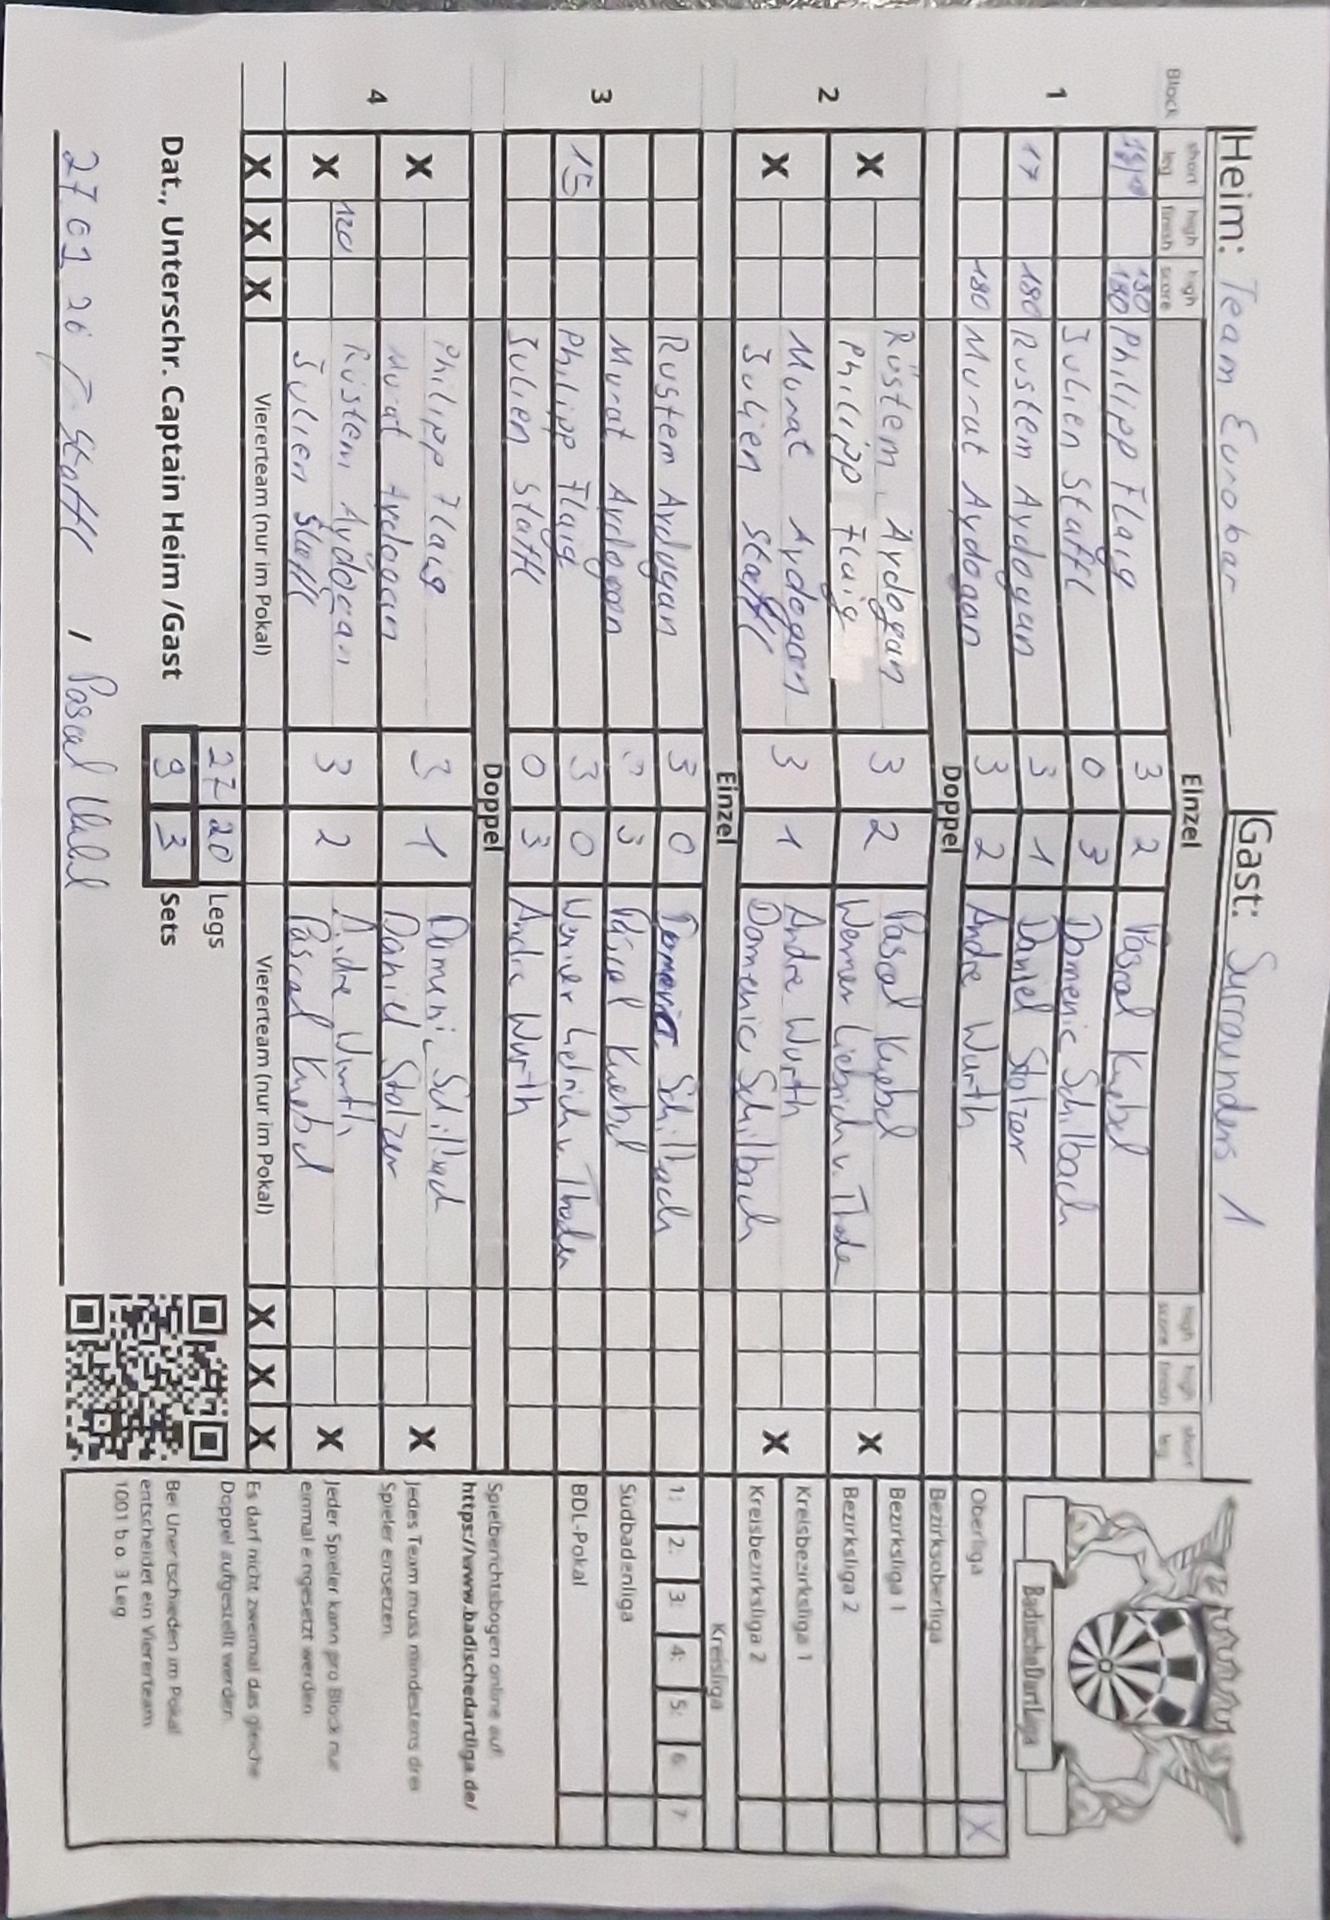 Heim: Team Eurobar
Gast: Surrounders 1
Block short leg high finish high score Einzel high score high finish short leg
1
180 180 Philipp Flaig 3 2 Pascal Knebel
Julien Staffl 0 3 Domenic Schilbach
17 180 Rüstem Aydogan 3 1 Daniel Stolzer
180 Murat Aydogan 3 2 Andre Wurth
Doppel
2
X Rüstem Aydogan 3 2 Pascal Knebel X
Philipp Flaig Werner Liebrich v. Thoda
X Murat Aydogan 3 1 Andre Wurth X
Julien Staffl Domenic Schilbach
Einzel
3
Rüstem Aydogan 3 0 Domenic Schilbach
Murat Aydogan 3 Pascal Knebel
15 Philipp Flaig 3 0 Werner Liebrich v. Thoden
Julien Staffl 0 3 Andre Wurth
Doppel
4
X Philipp Flaig 3 1 Domenic Schilbach X
Murat Aydogan Daniel Stolzer
X 120 Rüstem Aydogan 3 2 Andre Wurth X
Julien Staffl Pascal Knebel
X X X Viererteam (nur im Pokal) Viererteam (nur im Pokal) X X X
27 20 Legs
9 3 Sets
Dat., Unterschr. Captain Heim /Gast
27 01 26 Staffl / Pascal Knebel
BadischeDartLiga
Oberliga X
Bezirksoberliga
Bezirksliga 1
Bezirksliga 2
Kreisbezirksliga 1
Kreisbezirksliga 2
Kreisliga
1: 2: 3: 4: 5: 6: 7
Südbadenliga
BDL-Pokal
Spielberichtsbogen online auf:
https://www.badischedartliga.de/
Jedes Team muss mindestens drei
Spieler einsetzen.
Jeder Spieler kann pro Block nur
einmal eingesetzt werden
Es darf nicht zweimal das gleiche
Doppel aufgestellt werden.
Bei Unentschieden im Pokal
entscheidet ein Viererteam
1001 b.o. 3 Leg